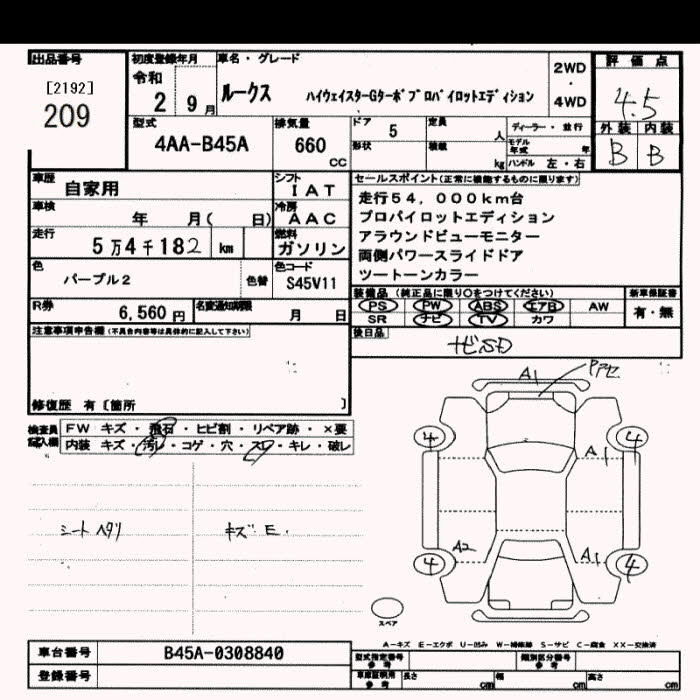 出品番号
[2192]
209
初度登録年月
令和
2 9月
車名・グレード
ルークス ハイウェイスターGターボプロパイロットエディション
2WD
・
4WD
評価点
4.5
外装 内装
B B
型式
4AA-B45A
排気量
660
cc
ドア 5
形状
定員 人
積載 kg
ディーラー・並行
モデル年式 年
ハンドル 左・右
車歴
自家用
シフト
IAT
車検
年 月( 日)
冷房
AAC
走行
5万4千182 km
燃料
ガソリン
色
パープル2
色替
色コード
S45V11
R券
6,560 円
名変通知期限
月 日
セールスポイント(正常に機能するものに限ります)
走行54,000km台
プロパイロットエディション
アラウンドビューモニター
両側パワースライドドア
ツートーンカラー
装備品(純正品に限り○をつけてください)
PS PW ABS エアB AW
SR ナビ TV カワ
新車保証書
有・無
後日品
ナビSD
注意事項申告欄(不具合内容等は具体的に記入して下さい)
修復歴 有〔箇所 〕
検査員記入欄
FW キズ・飛石・ヒビ割・リペア跡・×要
内装 キズ・汚レ・コゲ・穴・スレ・キレ・破レ
シートヘタリ
キズ E.
A1
Pアセ
4
4
A1
A2
A1
4
4
スペア
A-キズ E-エクボ U-凹み W-補修跡 S-サビ C-腐食 XX-交換済
車台番号
B45A-0308840
登録番号
型式指定番号
参考
類別区分番号
参考
車庫証明用
参考
長さ cm
幅 cm
高さ cm